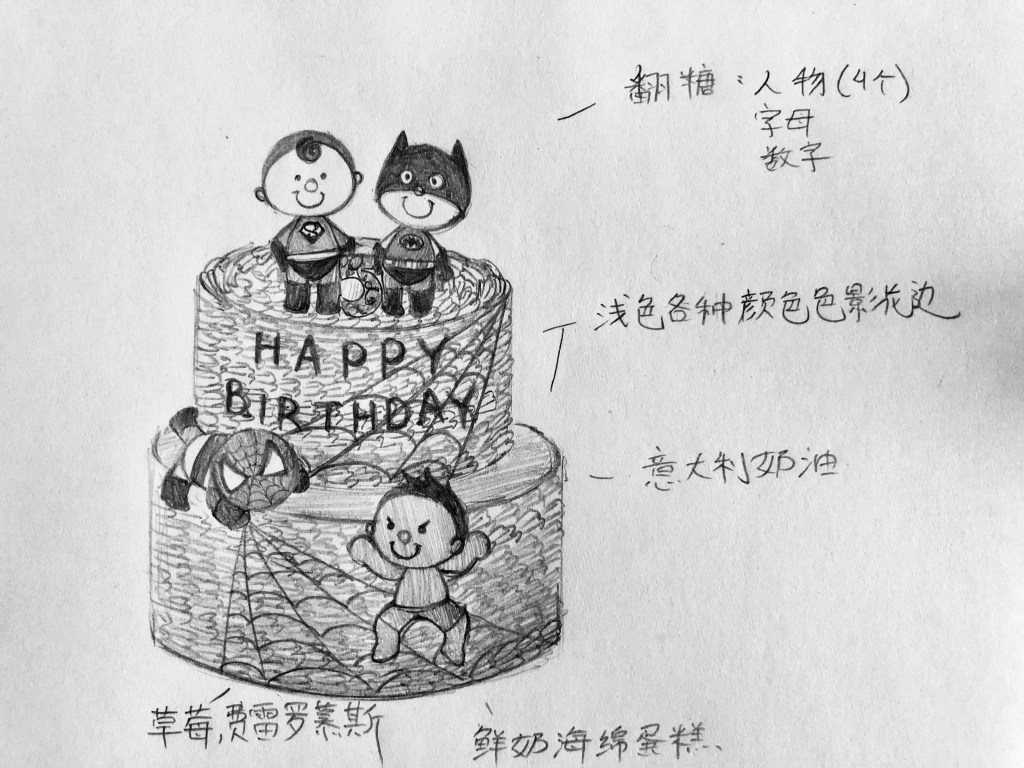 翻糖：人物(4个)
字母
数字
HAPPY
BIRTHDAY
浅色各种颜色色影花边
意大利奶油
草莓,费雷罗慕斯
鲜奶海绵蛋糕